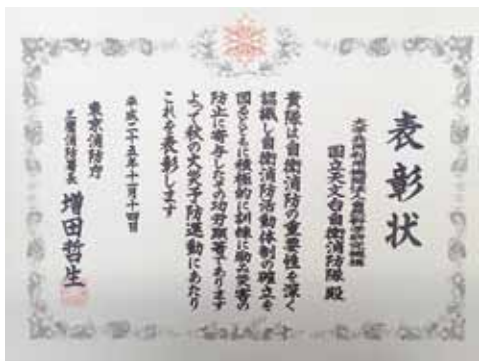 表彰状
大学共同利用機関法人自然科学研究機構
国立天文台自衛消防隊 殿
貴隊は自衛消防の重要性を深く
認識し自衛消防活動体制の確立を
図るとともに積極的に訓練に励み災害の
防止に寄与したその功労顕著であります
よって秋の火災予防運動にあたり
これを表彰します
平成二十五年十一月十四日
東京消防庁
三鷹消防署長 増田哲生